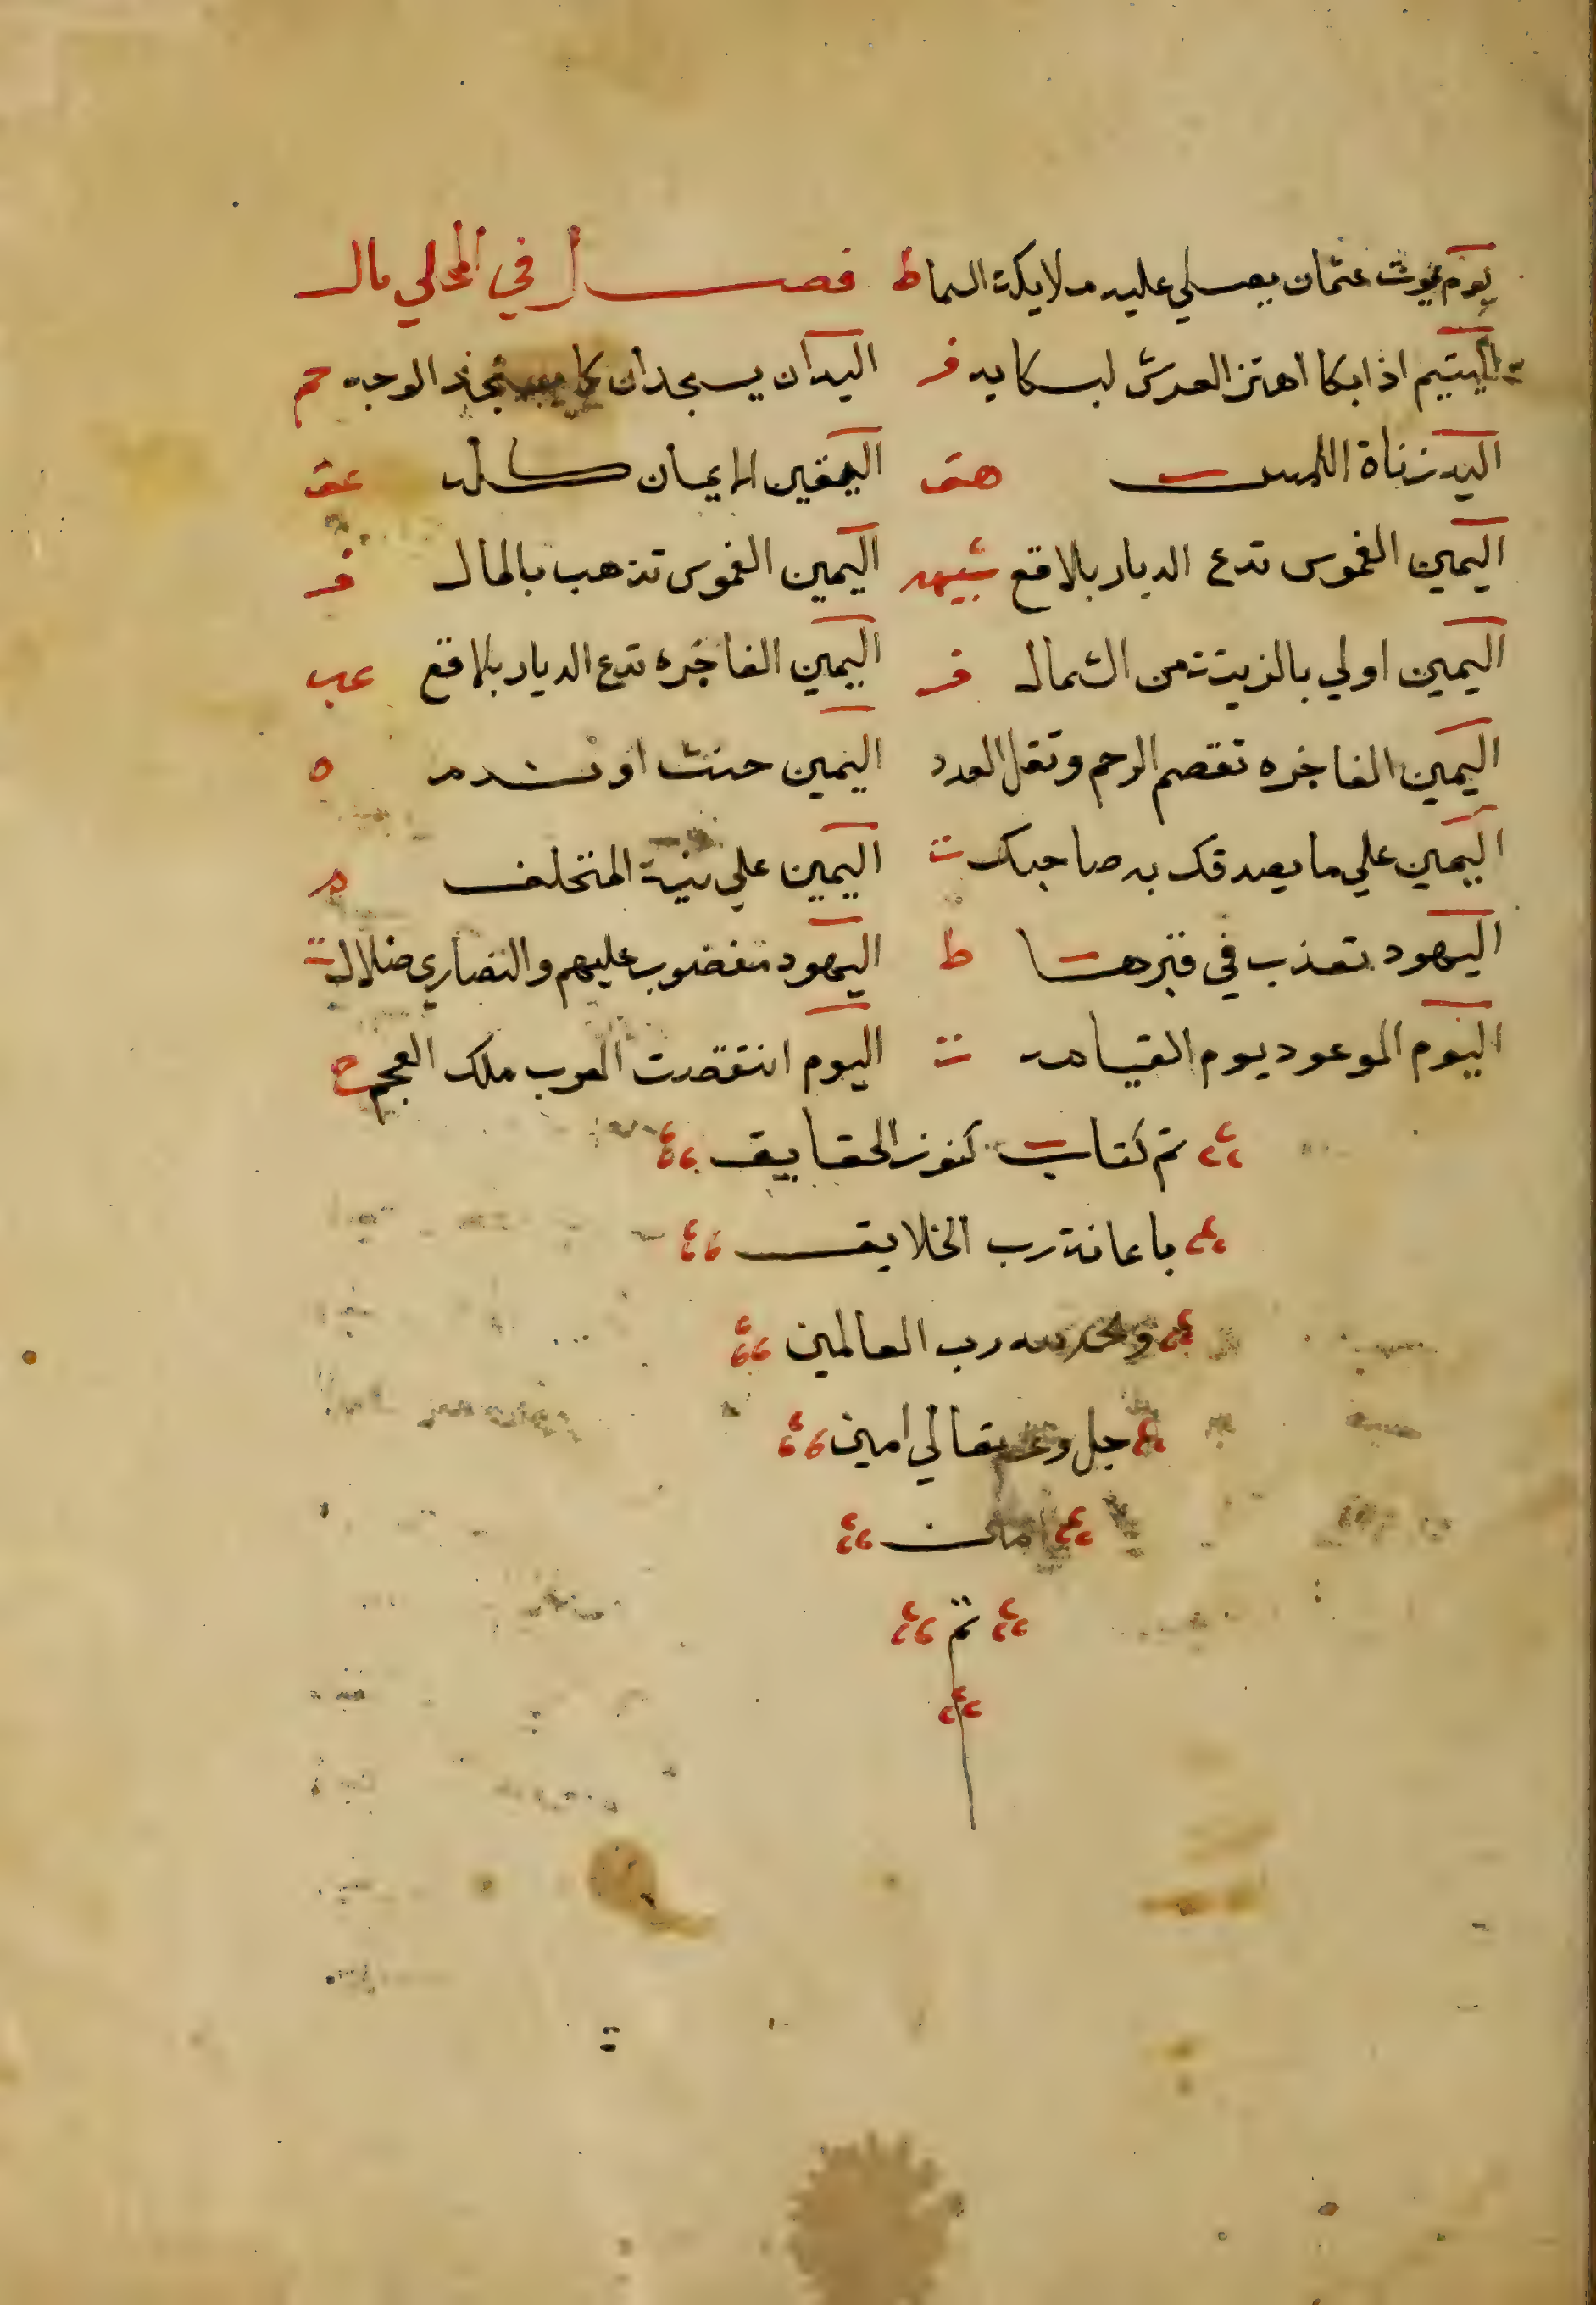 يوم يموت عثمان يصلي عليه ملايكة السما ط فصل في المحلي بال
اليتيم اذا بكا اهتز العرش لبكايه فر اليدان يسجدان كما يسجد الوجه حم
اليد زناة اللمس هق اليقين الايمان كله عق
اليمين الغموس تدع الديار بلاقع شيهه اليمين الغموس تذهب بالمال فر
اليمين اولي بالزينة من الشمال فر اليمين الفاجره تدع الديار بلاقع عب
اليمين الفاجره تقصم الرحم وتقل العدد اليمين حنث او ندم ه
اليمين علي ما يصدقك به صاحبك ت اليمين علي نية المتحلف م
اليهود تعذب في قبرها ط اليهود مغضوب عليهم والنصاري ضلال ت
اليوم الموعود يوم القيامه ت اليوم انتقصت العرب ملك العجم خ
تم كتاب كنوز الحقايق
باعانة رب الخلايق
والحمد لله رب العالمين
جل وعز تعالي امين
امين
تم